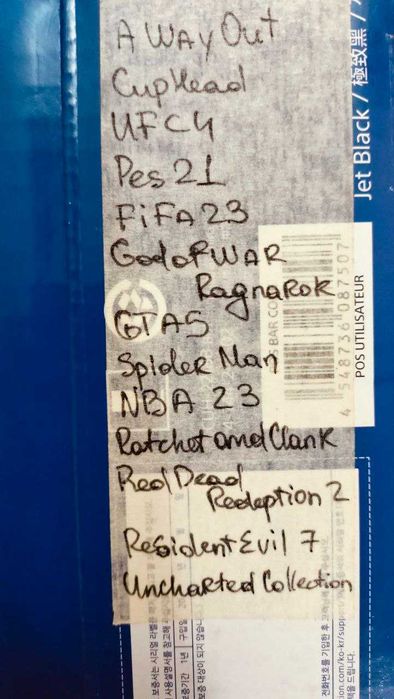 A WAY Out
CupHead
UFC4
Pes 21
FiFA 23
God oF WAR
RagnaRok
GTA5
SpideR Man
NBA 23
Ratchet and Clank
Red Dead
Redeption 2
Resident Evil 7
Uncharted Collection
Jet Black / 極致黑 /
BAR CO
4 548736 087507
POS UTILISATEUR
보증기간 1년 구입일